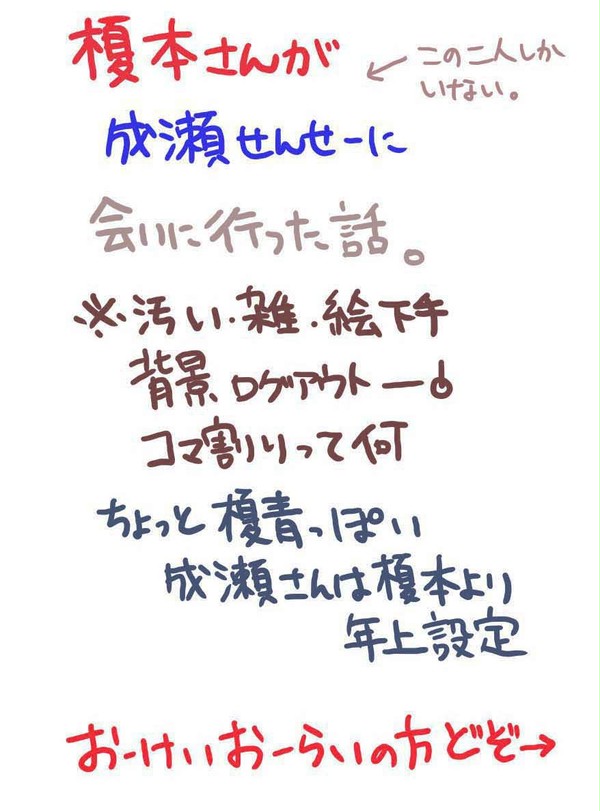 榎本さんが
←この二人しか
いけない。
成瀬せんせーに
会いに行った話。
※汚い・雑・絵下手
背景ログアウトー!
コマ割りって何
ちょっと榎青っぽい
成瀬さんは榎本より
年上設定
おーけいおーらいの方どぞ→